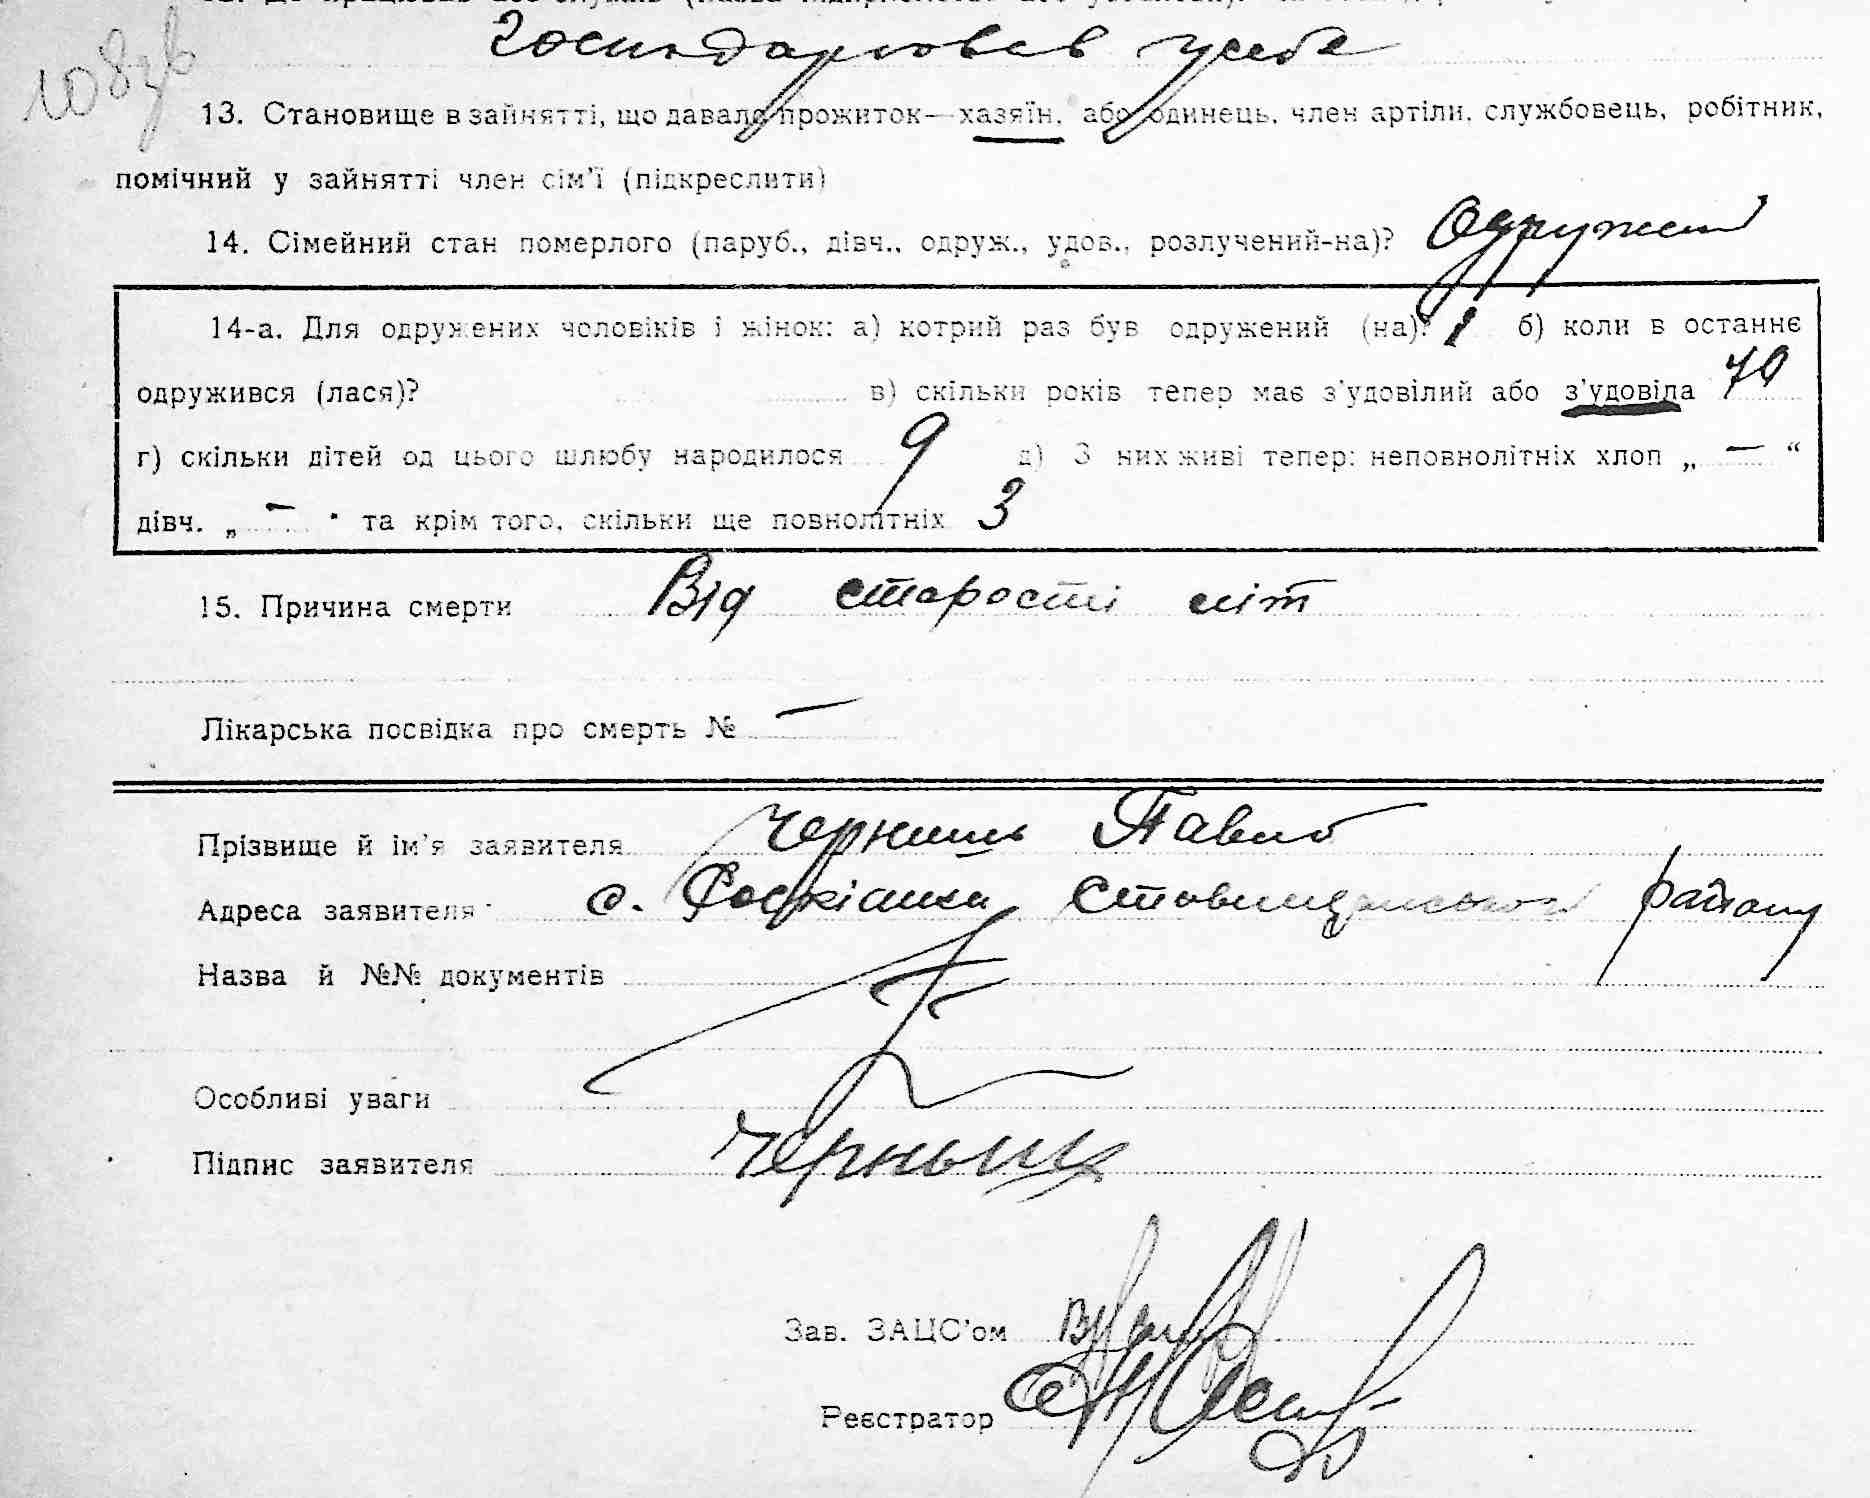 Господарював у себе
13. Становище в зайнятті, що давало прожиток—хазяїн, або одинець, член артіли, службовець, робітник,
помічний у зайнятті член сім'ї (підкреслити)
14. Сімейний стан померлого (паруб., дівч., одруж., удов., розлучений-на)? Одружений
14-а. Для одружених чоловіків і жінок: а) котрий раз був одружений (на)? 1 б) коли в останнє
одружився (лася)? в) скільки років тепер має з'удовілий або з'удовіла 70
г) скільки дітей од цього шлюбу народилося 9 д) З них живі тепер: неповнолітніх хлоп „ — “
дівч. „ — " та крім того, скільки ще повнолітніх 3
15. Причина смерти Від старости літ
Лікарська посвідка про смерть № —
Прізвище й ім'я заявителя Черниш Павло
Адреса заявителя с. Ставищанського району
Назва й №№ документів
Особливі уваги
Підпис заявителя Черныш
Зав. ЗАЦС'ом
Реєстратор